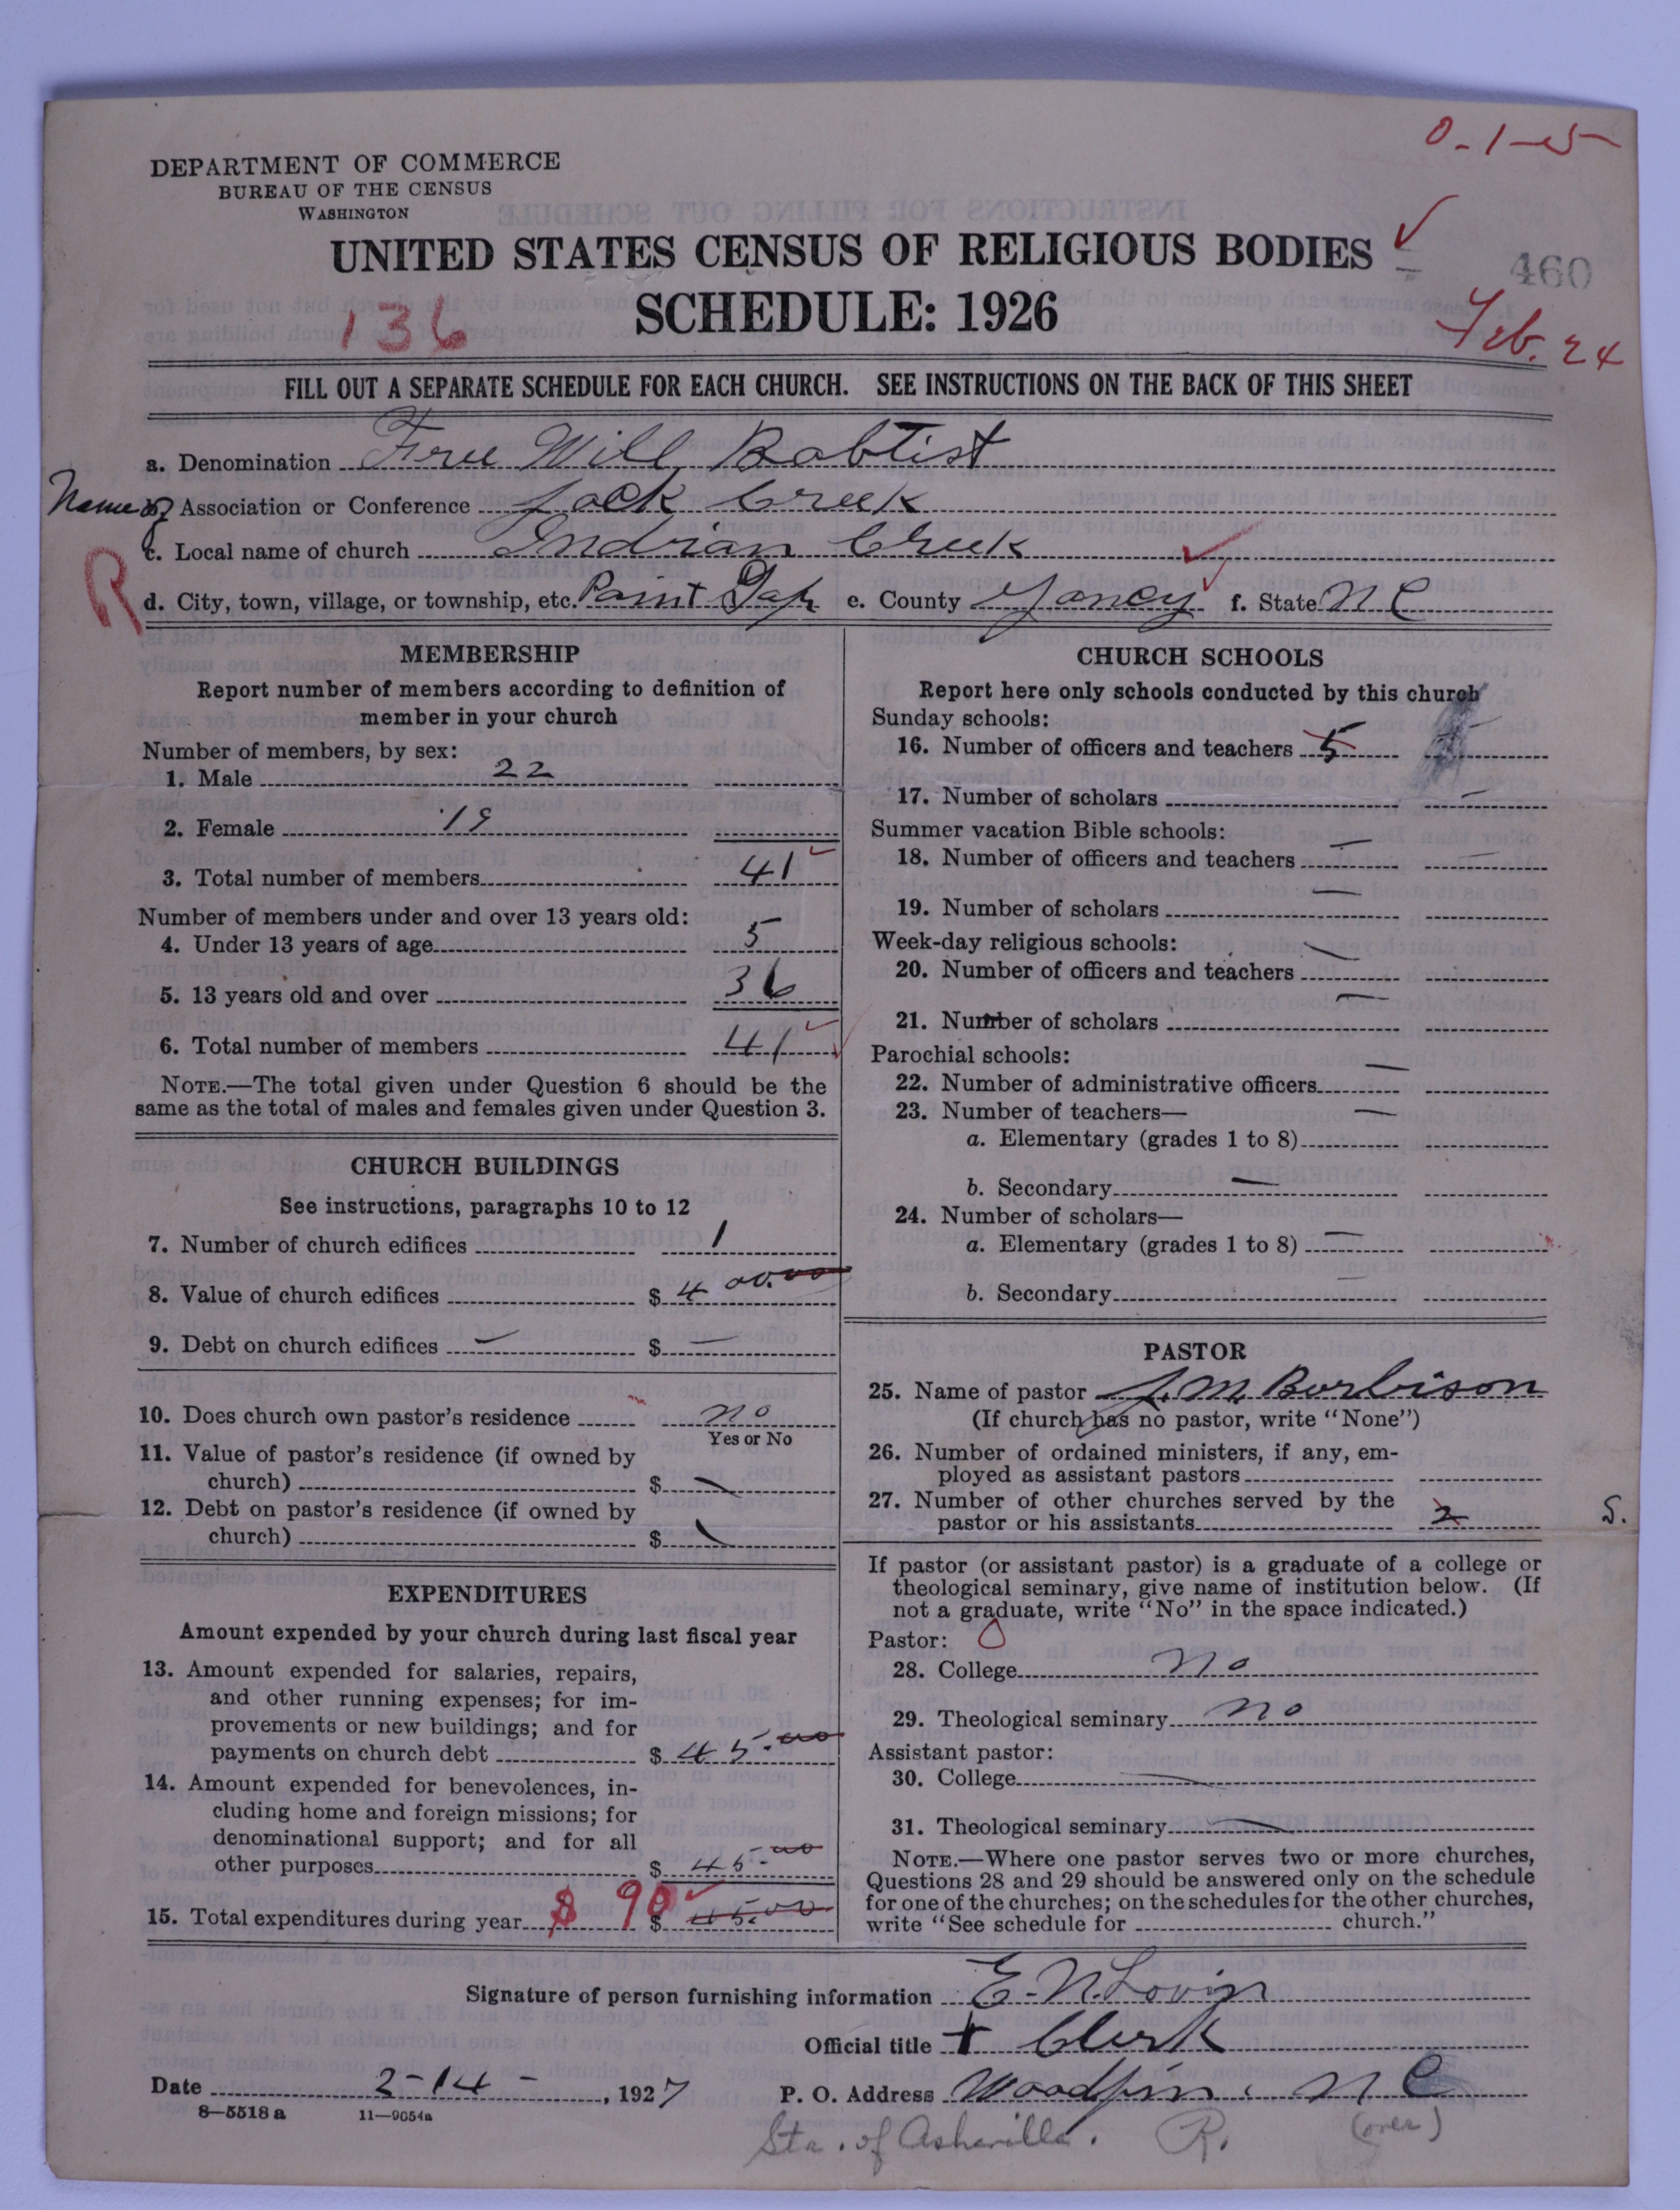 0-1-5
DEPARTMENT OF COMMERCE
BUREAU OF THE CENSUS
WASHINGTON
UNITED STATES CENSUS OF RELIGIOUS BODIES
460
136
SCHEDULE: 1926
Feb. 24
FILL OUT A SEPARATE SCHEDULE FOR EACH CHURCH. SEE INSTRUCTIONS ON THE BACK OF THIS SHEET
a. Denomination Free Will Babtist
Name of Association or Conference Jack Creek
c. Local name of church Indian Creek
R
d. City, town, village, or township, etc. Paint Gap e. County Yancy f. State N C
MEMBERSHIP
Report number of members according to definition of
member in your church
Number of members, by sex:
1. Male 22
2. Female 19
3. Total number of members 41
Number of members under and over 13 years old:
4. Under 13 years of age 5
5. 13 years old and over 36
6. Total number of members 41
NOTE.—The total given under Question 6 should be the
same as the total of males and females given under Question 3.
CHURCH BUILDINGS
See instructions, paragraphs 10 to 12
7. Number of church edifices 1
8. Value of church edifices $ 400.00
9. Debt on church edifices — $ —
10. Does church own pastor's residence no
Yes or No
11. Value of pastor's residence (if owned by
church) $ —
12. Debt on pastor's residence (if owned by
church) $ —
EXPENDITURES
Amount expended by your church during last fiscal year
13. Amount expended for salaries, repairs,
and other running expenses; for im-
provements or new buildings; and for
payments on church debt $ 45.00
14. Amount expended for benevolences, in-
cluding home and foreign missions; for
denominational support; and for all
other purposes $ 45-00
15. Total expenditures during year $ 90 $ 45.00
CHURCH SCHOOLS
Report here only schools conducted by this church
Sunday schools:
16. Number of officers and teachers 5
17. Number of scholars —
Summer vacation Bible schools:
18. Number of officers and teachers — —
19. Number of scholars —
Week-day religious schools:
20. Number of officers and teachers —
21. Number of scholars —
Parochial schools:
22. Number of administrative officers —
23. Number of teachers—
a. Elementary (grades 1 to 8) —
b. Secondary —
24. Number of scholars—
a. Elementary (grades 1 to 8) —
b. Secondary —
PASTOR
25. Name of pastor J. M. Burbison
(If church has no pastor, write "None")
26. Number of ordained ministers, if any, em-
ployed as assistant pastors
27. Number of other churches served by the
pastor or his assistants 2
S.
If pastor (or assistant pastor) is a graduate of a college or
theological seminary, give name of institution below. (If
not a graduate, write "No" in the space indicated.)
Pastor: 0
28. College no
29. Theological seminary no
Assistant pastor:
30. College —
31. Theological seminary —
NOTE.—Where one pastor serves two or more churches,
Questions 28 and 29 should be answered only on the schedule
for one of the churches; on the schedules for the other churches,
write "See schedule for church."
Signature of person furnishing information E. N. Lovin
Official title + Clerk
Date 2-14-, 1927 P. O. Address Woodfin. N C
8—5518a 11—9054a
Sta. of Asheville. R. (over)